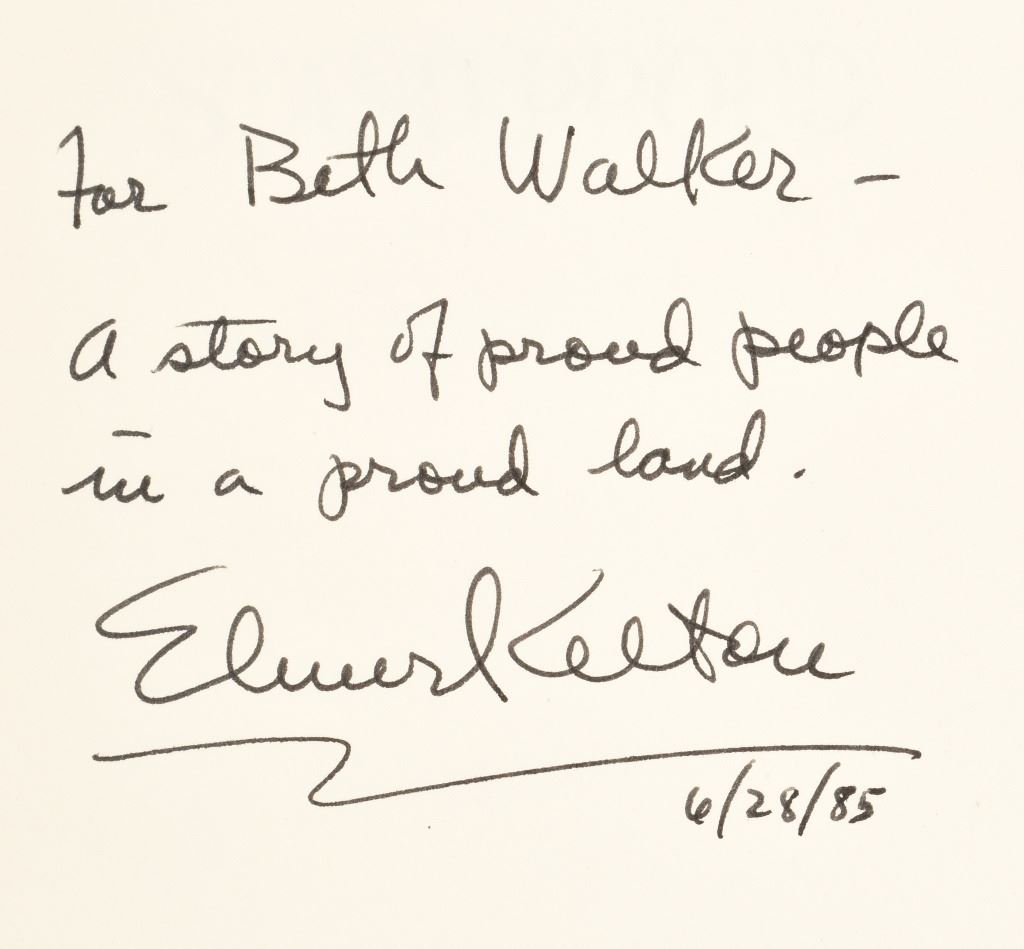 For Beth Walker –
A story of proud people
in a proud land.
Elmer Kelton
6/28/85